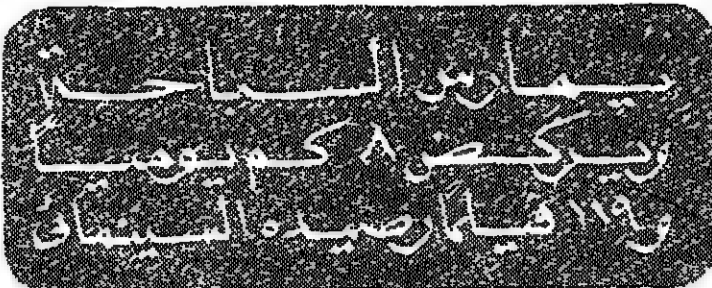 يمارس السباحة
ويركض ٨ كم يوميًا
و١١٩ فيلمًا رصيده السينمائى